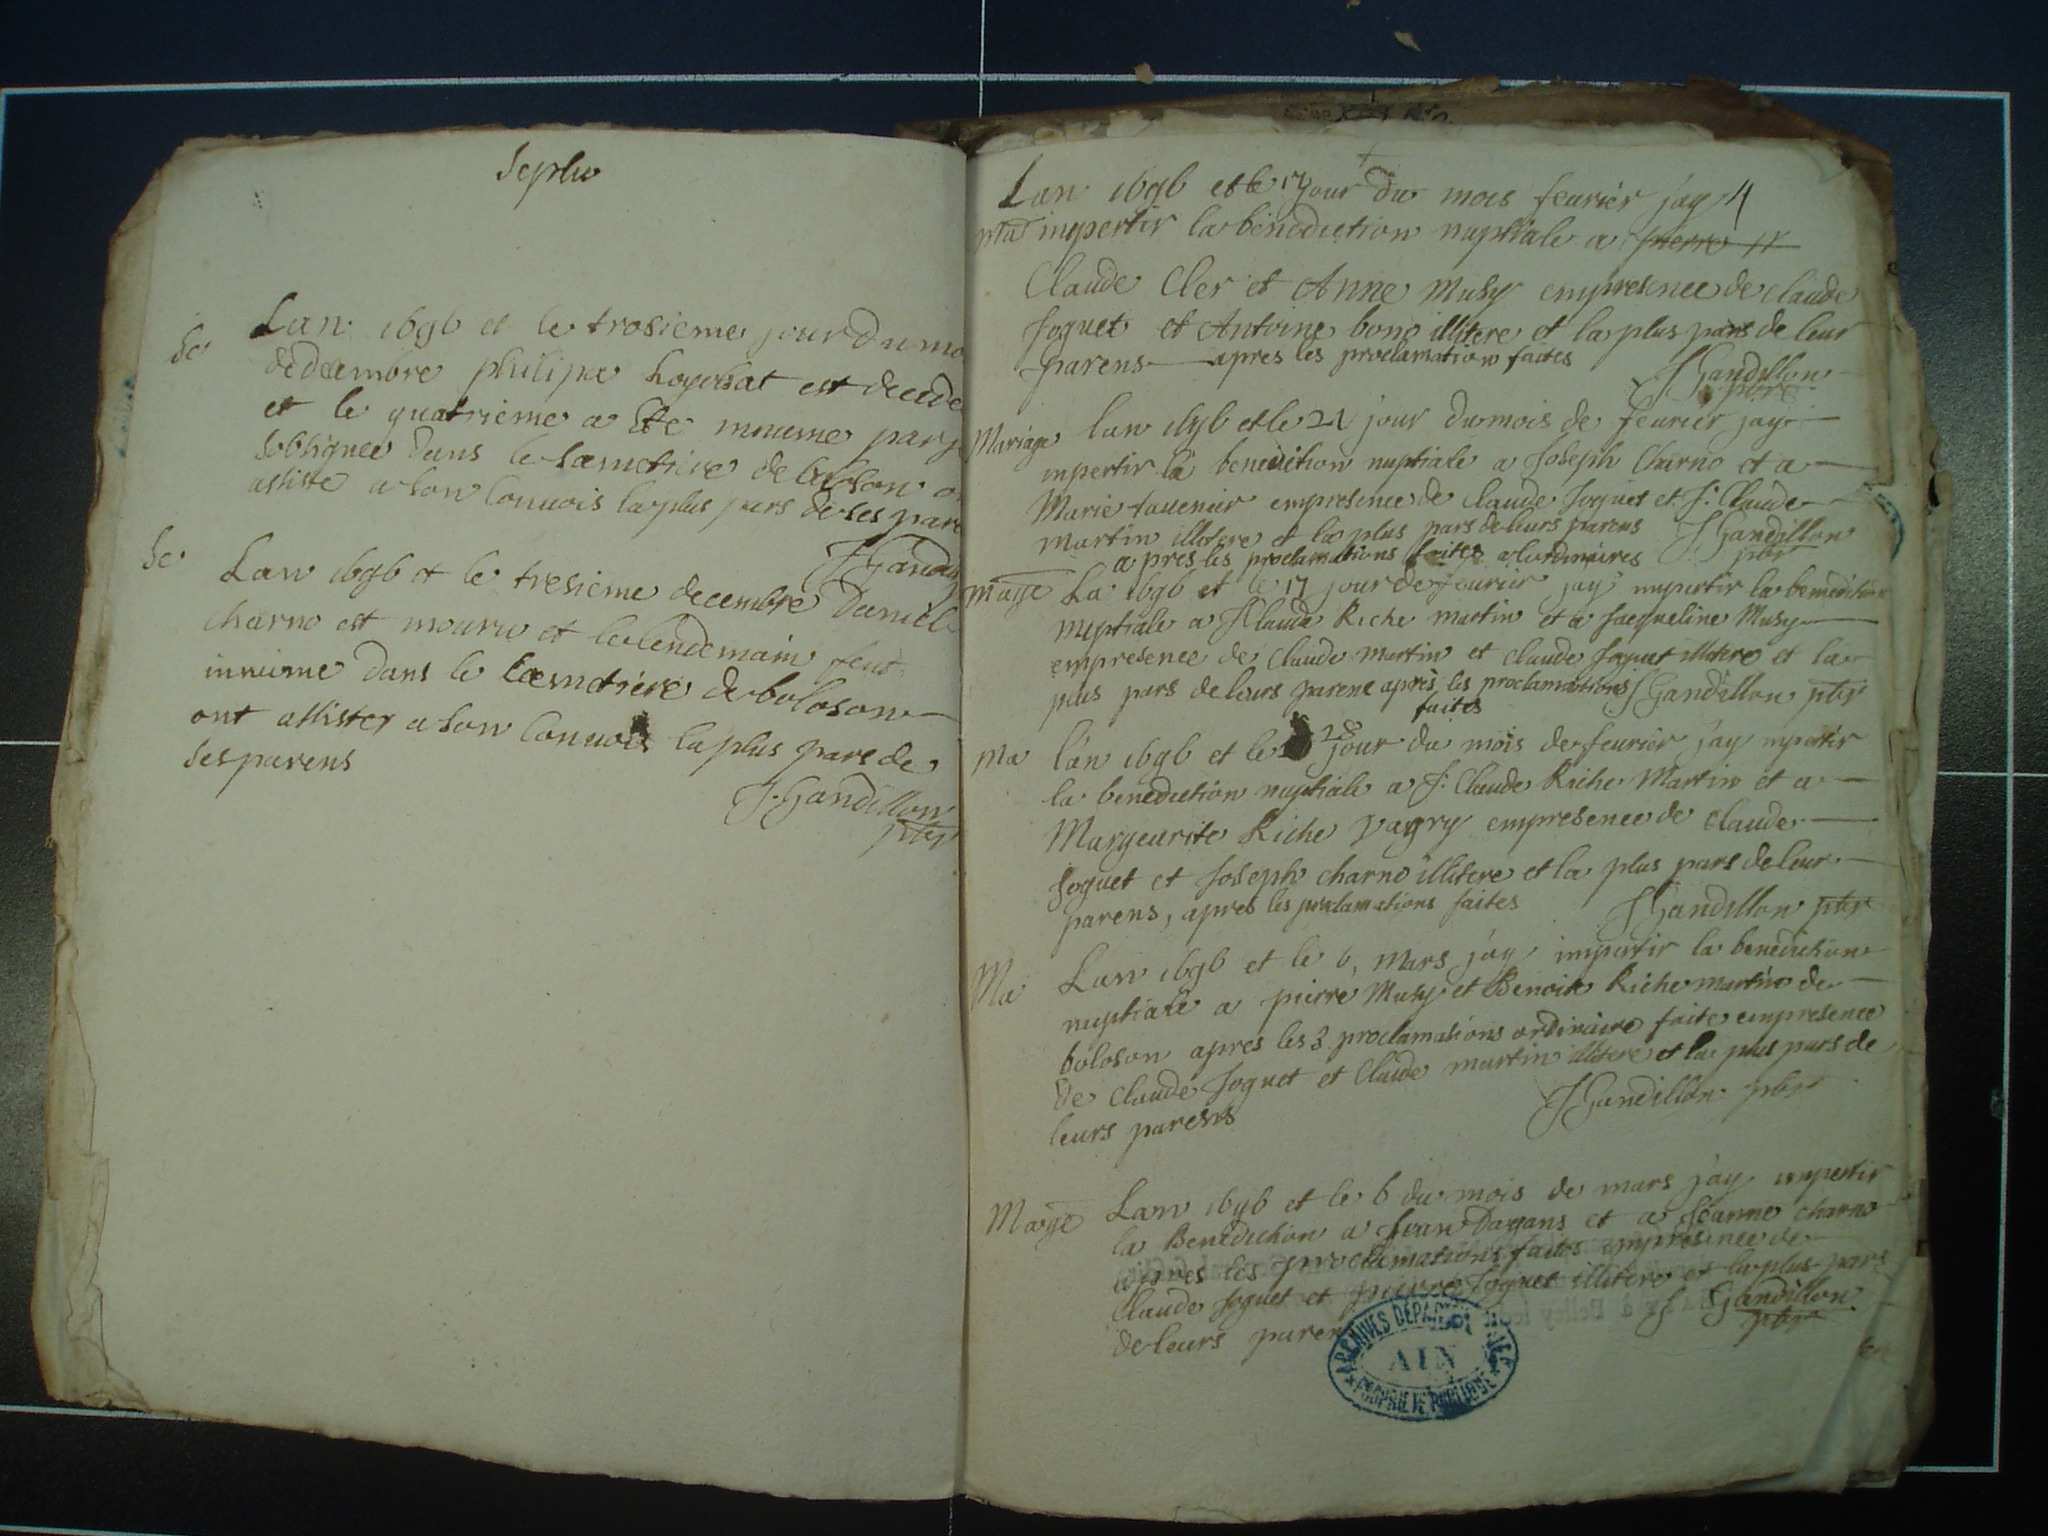 Sepltu
Lan 1696 et le trosieme jour du mo
Se
de decembre philipe hogehat est decede
et le quatrieme a Ete inhume par
Sobsignee dans le Saemetiere de boloson
assiste a son Conuois la plus pars de ses pare
J Gandi
Se
Lan 1696 et le tresieme decembre Daniel
charno est mouru et le lendemain feut
inhume dans le Caemetiere de boloson
ont assister a son Conuois la plus pars de
Ses parens
J. Gandillon
pbr
Lan 1696 et le 17 jour du mois feurier jay 4
Ma impertir la benediction nuptiale a pierre
Claude Cler et Anne Musy empresence de claude
Joguet et Antoine bono illitere et la plus pars de leur
parens apres les proclamation faites
J Gandillon
pbre
Mariage lan 1696 et le 21 jour du mois de feurier jay
inpertir la benedition nuptiale a Joseph Charno et a
Marie tauenier empresence de Claude Joguet et J: Claude
Martin illitere et la plus pars de leurs parens J Gandillon
apres les proclamations faites a lordinaires pbr
Mage La 1696 et le 17 jour de feurier jay inpertir la benediction
nuptiale a J Claude Riche martin et a Jacqueline Musy
empresence de Claude Martin et Claude Joguet illitere et la
plus pars de leurs parens apres les proclamations J Gandillon pbr
faites
Ma lan 1696 et le 28 jour du mois de feurier jay inpertir
la benediction nuptiale a J: Claude Riche Martin et a
Margeurite Riche pagry empresence de Claude
Joguet et Joseph charno illitere et la plus pars de leur
parens, apres les proclamations faites J Gandillon pbr
Ma Lan 1696 et le 6, Mars jay impertir la benediction
nuptiale a pierre Musy et Benoite Riche martin de
boloson apres les 3 proclamations ordinaire faite empresence
de Claude Joguet et Claude martin illitere et la plus pars de
leurs parens J Gandillon pbr
Mage Lan 1696 et le 6 du mois de mars jay impertir
la Benediction a Jean Dagans et a Jeanne charno
apres les proclamations faites empresence de
Claude Joguet et pierre Joguet illitere et la plus pars
de leurs paren J Gandillon
pbr
ARCHIVES DEPARTEMENTALES
AIN
PROPRIETE PUBLIQUE